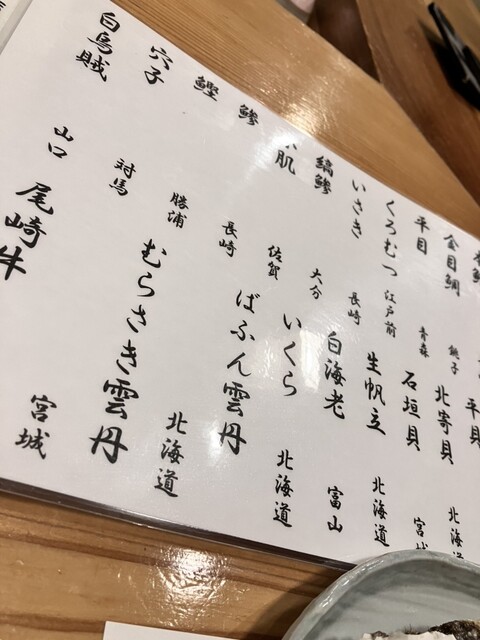 平貝
金目鯛 銚子 北寄貝 北海道
平目 青森 石垣貝 宮城
くろむつ 江戸前 生帆立 北海道
いさき 長崎 白海老 富山
縞鯵 大分 いくら 北海道
肌 佐賀 ばふん雲丹 北海道
鯵 長崎 むらさき雲丹 宮城
鰹 勝浦 尾崎牛
穴子 対馬
白烏賊 山口